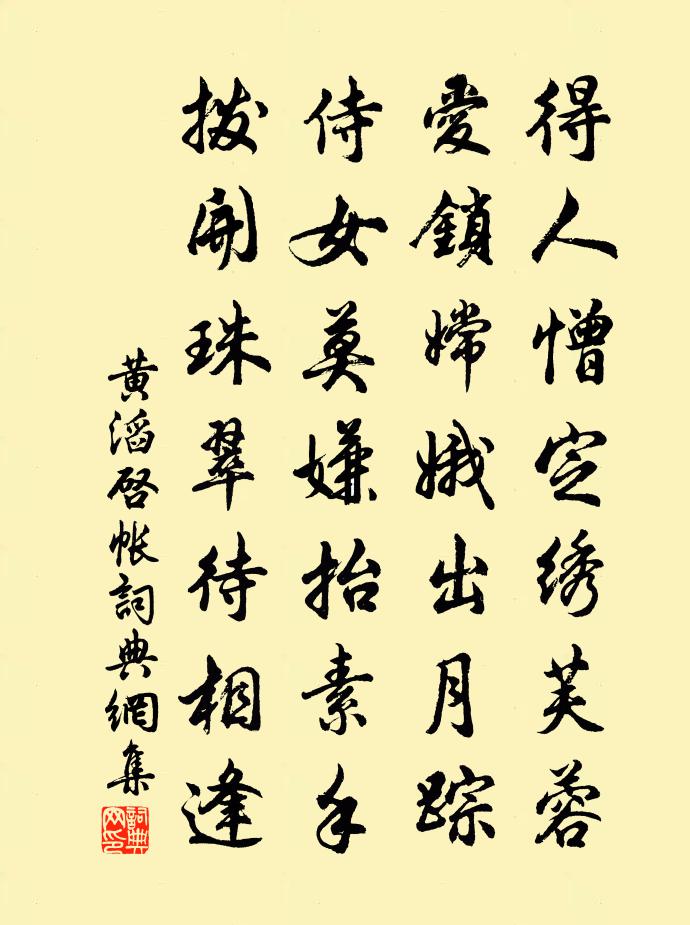 得人憎定绣芙蓉
愛鎖嫦娥出月踪
侍女莫嫌抬素手
撥開珠翠待相逢
黄滔啓帐詞典網集
詞典网印